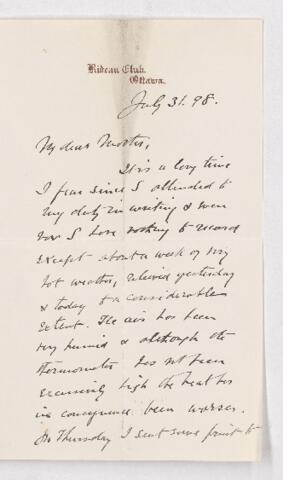 Rideau Club.
Ottawa.
July 31. 98.
My dear Mother,
It is a long time
I fear since I attended to
my duty in writing & even
now I have nothing to record
except about a week of very
hot weather, relieved yesterday
& today to a considerable
extent. The air has been
very humid & although the
thermometer has not been
excessively high the heat has
in consequence been worse.
On Thursday I sent some fruit to